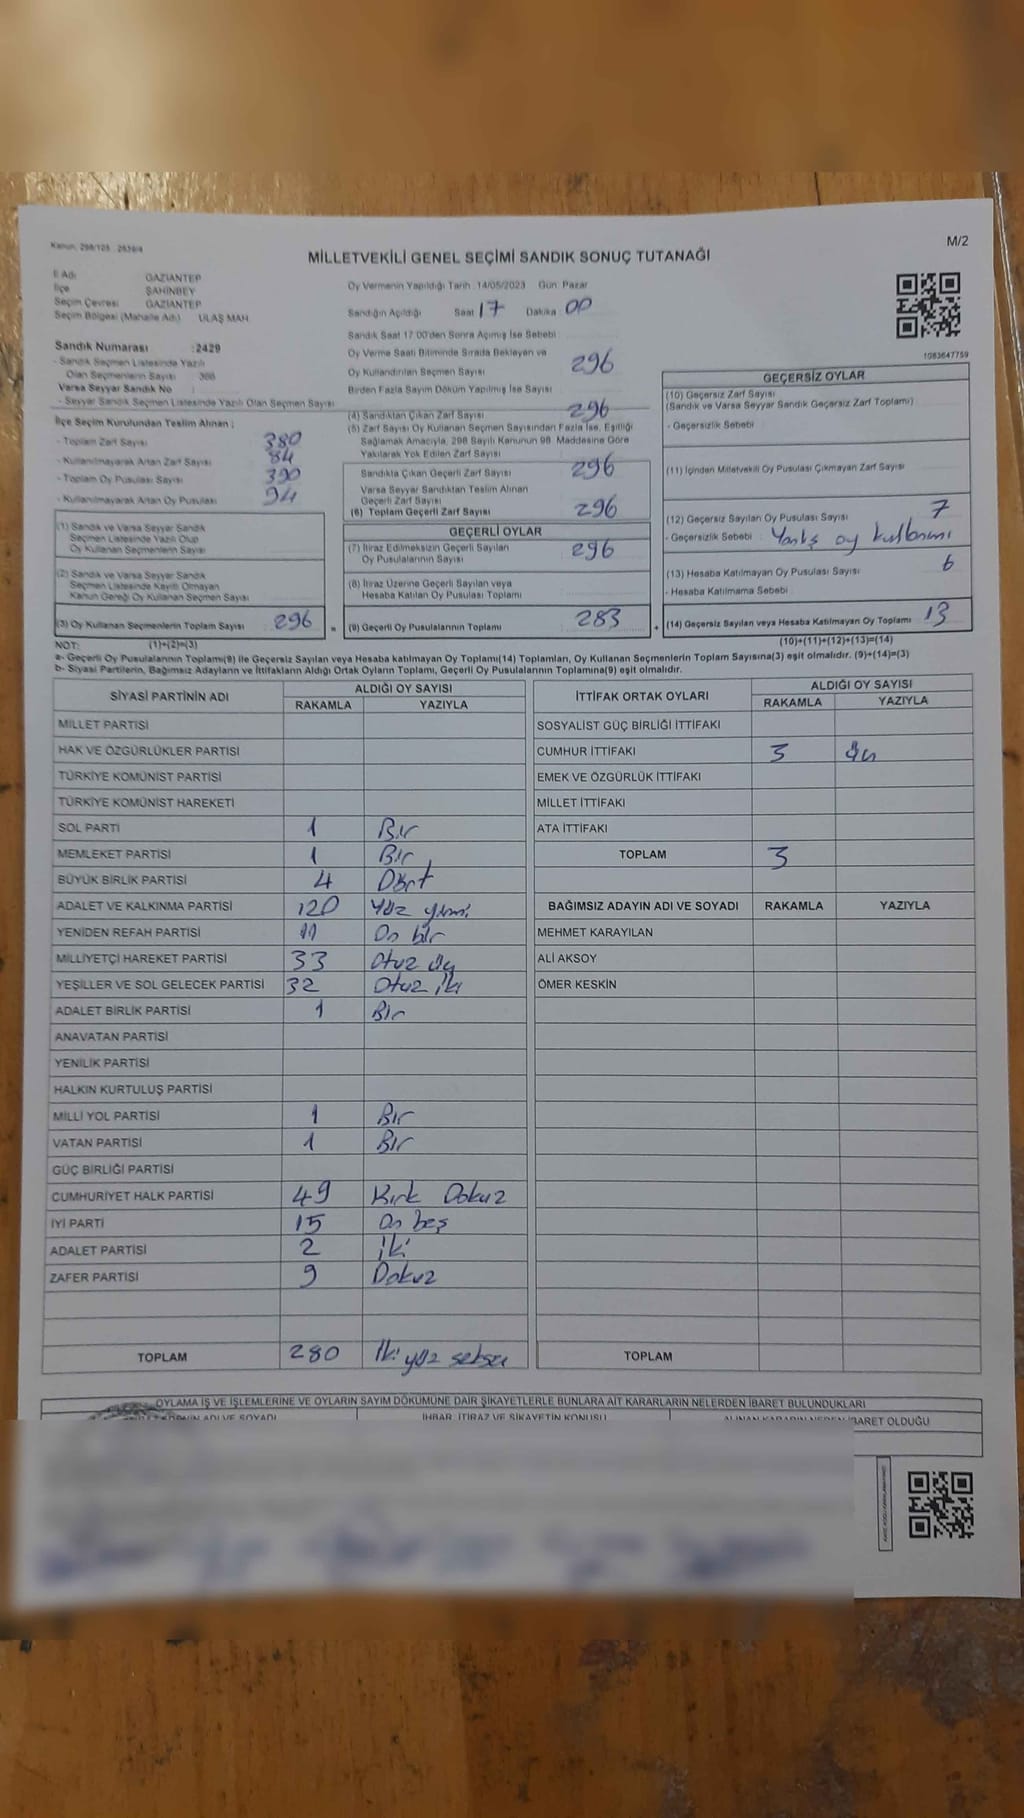 Kanun: 298/105 - 2839/4
M/2
MİLLETVEKİLİ GENEL SEÇİMİ SANDIK SONUÇ TUTANAĞI
İl Adı GAZİANTEP
İlçe ŞAHİNBEY
Seçim Çevresi GAZİANTEP
Seçim Bölgesi (Mahalle Adı) ULAŞ MAH.
Sandık Numarası : 2429
- Sandık Seçmen Listesinde Yazılı
Olan Seçmenlerin Sayısı : 366
Varsa Seyyar Sandık No
- Seyyar Sandık Seçmen Listesinde Yazılı Olan Seçmen Sayısı
Oy Vermenin Yapıldığı Tarih : 14/05/2023 Gün: Pazar
Sandığın Açıldığı Saat 17 Dakika 00
Sandık Saat 17:00'den Sonra Açımış İse Sebebi
Oy Verme Saati Bitiminde Sırada Bekleyen ve
Oy Kullandırılan Seçmen Sayısı 296
Birden Fazla Sayım Döküm Yapılmış İse Sayısı
1083647759
İlçe Seçim Kurulundan Teslim Alınan ;
- Toplam Zarf Sayısı 380
- Kullanılmayarak Artan Zarf Sayısı 84
- Toplam Oy Pusulası Sayısı 390
- Kullanılmayarak Artan Oy Pusulası 94
(1) Sandık ve Varsa Seyyar Sandık
Seçmen Listesinde Yazılı Olup
Oy Kullanan Seçmenlerin Sayısı
(2) Sandık ve Varsa Seyyar Sandık
Seçmen Listesinde Kayıtlı Olmayan
Kanun Gereği Oy Kullanan Seçmen Sayısı
(3) Oy Kullanan Seçmenlerin Toplam Sayısı 296 =
(4) Sandıktan Çıkan Zarf Sayısı 296
(5) Zarf Sayısı Oy Kullanan Seçmen Sayısından Fazla İse, Eşitliği
Sağlamak Amacıyla, 298 Sayılı Kanunun 98. Maddesine Göre
Yakılarak Yok Edilen Zarf Sayısı
Sandıkta Çıkan Geçerli Zarf Sayısı 296
Varsa Seyyar Sandıktan Teslim Alınan
Geçerli Zarf Sayısı
(6) Toplam Geçerli Zarf Sayısı 296
GEÇERLİ OYLAR
(7) İtiraz Edilmeksizin Geçerli Sayılan
Oy Pusulalarının Sayısı 296
(8) İtiraz Üzerine Geçerli Sayılan veya
Hesaba Katılan Oy Pusulası Toplamı
(9) Geçerli Oy Pusulalarının Toplamı 283 +
GEÇERSİZ OYLAR
(10) Geçersiz Zarf Sayısı
(Sandık ve Varsa Seyyar Sandık Geçersiz Zarf Toplamı)
- Geçersizlik Sebebi
(11) İçinden Milletvekili Oy Pusulası Çıkmayan Zarf Sayısı
(12) Geçersiz Sayılan Oy Pusulası Sayısı 7
- Geçersizlik Sebebi : Yanlış oy kullanımı
(13) Hesaba Katılmayan Oy Pusulası Sayısı 6
- Hesaba Katılmama Sebebi
(14) Geçersiz Sayılan veya Hesaba Katılmayan Oy Toplamı 13
NOT: (1)+(2)=(3) (10)+(11)+(12)+(13)=(14)
a- Geçerli Oy Pusulalarının Toplamı(9) ile Geçersiz Sayılan veya Hesaba katılmayan Oy Toplamı(14) Toplamları, Oy Kullanan Seçmenlerin Toplam Sayısına(3) eşit olmalıdır. (9)+(14)=(3)
b- Siyasi Partilerin, Bağımsız Adayların ve İttifakların Aldığı Ortak Oyların Toplamı, Geçerli Oy Pusulalarının Toplamına(9) eşit olmalıdır.
SİYASİ PARTİNİN ADI ALDIĞI OY SAYISI
RAKAMLA YAZIYLA
MİLLET PARTİSİ
HAK VE ÖZGÜRLÜKLER PARTİSİ
TÜRKİYE KOMÜNİST PARTİSİ
TÜRKİYE KOMÜNİST HAREKETİ
SOL PARTİ 1 Bir
MEMLEKET PARTİSİ 1 Bir
BÜYÜK BİRLİK PARTİSİ 4 Dört
ADALET VE KALKINMA PARTİSİ 120 Yüz yirmi
YENİDEN REFAH PARTİSİ 11 On bir
MİLLİYETÇİ HAREKET PARTİSİ 33 Otuz üç
YEŞİLLER VE SOL GELECEK PARTİSİ 32 Otuz iki
ADALET BİRLİK PARTİSİ 1 Bir
ANAVATAN PARTİSİ
YENİLİK PARTİSİ
HALKIN KURTULUŞ PARTİSİ
MİLLİ YOL PARTİSİ 1 Bir
VATAN PARTİSİ 1 Bir
GÜÇ BİRLİĞİ PARTİSİ
CUMHURİYET HALK PARTİSİ 49 Kırk Dokuz
İYİ PARTİ 15 On beş
ADALET PARTİSİ 2 İki
ZAFER PARTİSİ 9 Dokuz
TOPLAM 280 İki yüz seksen
İTTİFAK ORTAK OYLARI ALDIĞI OY SAYISI
RAKAMLA YAZIYLA
SOSYALİST GÜÇ BİRLİĞİ İTTİFAKI
CUMHUR İTTİFAKI 3 üç
EMEK VE ÖZGÜRLÜK İTTİFAKI
MİLLET İTTİFAKI
ATA İTTİFAKI
TOPLAM 3
BAĞIMSIZ ADAYIN ADI VE SOYADI RAKAMLA YAZIYLA
MEHMET KARAYILAN
ALİ AKSOY
ÖMER KESKİN
TOPLAM
OYLAMA İŞ VE İŞLEMLERİNE VE OYLARIN SAYIM DÖKÜMÜNE DAİR ŞİKAYETLERLE BUNLARA AİT KARARLARIN NELERDEN İBARET BULUNDUKLARI
ADI VE SOYADI İHBAR, İTİRAZ VE ŞİKAYETİN KONUSU ALINAN KARARIN NEDEN İBARET OLDUĞU